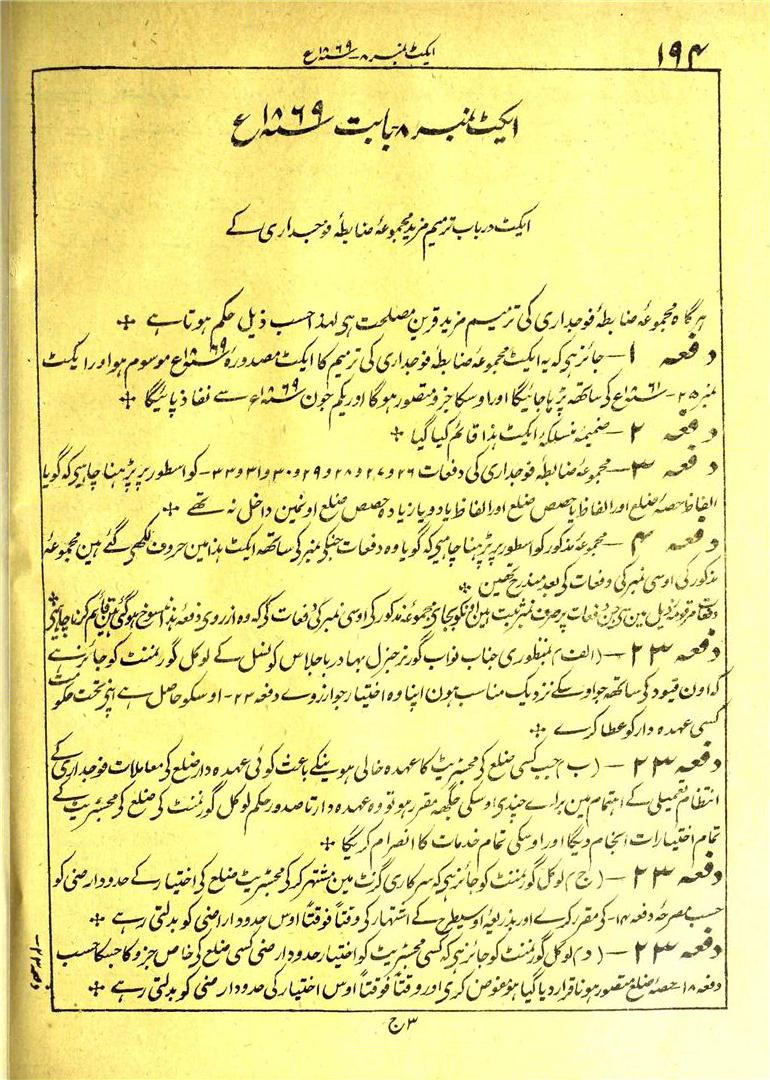 ۱۹۴
ایکٹ نمبر ۸ سنہ ۱۸۶۹ع
ایکٹ نمبر ۸ بابت سنہ ۱۸۶۹ع
ایکٹ درباب ترمیم مزید مجموعۂ ضابطۂ فوجداری کے
ہرگاہ مجموعۂ ضابطۂ فوجداری کی ترمیم مزید قرین مصلحت ہی لہذا حسب ذیل حکم ہوتا ہے
دفعہ ۱ — جائز ہی کہ یہ ایکٹ مجموعۂ ضابطۂ فوجداری کی ترمیم کا ایکٹ مصدورۂ سنہ ۱۸۶۹ع موسوم ہو اور ایکٹ
نمبر ۲۵ - سنہ ۱۸۶۱ع کی ساتھہ پڑہا جائیگا اور اوسکا جزو متصور ہوگا اور یکم جون سنہ ۱۸۶۹ع سے نفاذ پائیگا
دفعہ ۲ — ضمیمۂ منسلکۂ ایکٹ ہذا قائم کیا گیا
دفعہ ۳ — مجموعۂ ضابطۂ فوجداری کی دفعات ۲۶ و ۲۷ و ۲۸ و ۲۹ و ۳۰ و ۳۱ و ۳۳ - کو اسطور پر پڑہنا چاہیی کہ گویا
الفاظ حصۂ ضلع اور الفاظ یا حصص ضلع اور الفاظ یا دو یا زیادہ حصص ضلع اونمین داخل نہ تھے
دفعہ ۴ — مجموعۂ مذکور کو اسطور پر پڑہنا چاہیی کہ گویا وہ دفعات جنکی نمبر کی ساتھہ ایکٹ ہذا مین حروف لکھی گئے ہین مجموعۂ
مذکور کی اوسی نمبر کی دفعات کی بعد مندرج تھین
دفعات مرقومۂ ذیل مین سی جن دفعات پر صرف نمبر ثبت ہین اونکو بجای مجموعۂ مذکور کی اوسی نمبر کی دفعات کی کہ وہ ازروی دفعۂ ہذا منسوخ ہوگئی ہین قائم کرنا چاہیی
دفعہ ۲۳ — (الف) بمنظوری جناب نواب گورنر جنرل بہادر باجلاس کونسل کے لوکل گورنمنٹ کو جائز ہے
کہ اون قیود کی ساتھہ جو اوسکے نزدیک مناسب ہون اپنا وہ اختیار جو ازروے دفعہ ۲۳ - اوسکو حاصل ہے اپنی تحت حکومت
کسی عہدہ دار کو عطا کرے
دفعہ ۲۳ — (ب) جب کسی ضلع کی مجسٹریٹ کا عہدہ خالی ہونیکے باعث کوئی عہدہ دار ضلع کی معاملات فوجداری کے
انتظام تعمیلی کے اہتمام مین براے چندی اوسکی جگہہ مقرر ہو تو وہ عہدہ دار تا صدور حکم لوکل گورنمنٹ کی ضلع کی مجسٹریٹ کے
تمام اختیارات انجام دیگا اور اوسکی تمام خدمات کا انصرام کریگا
دفعہ ۲۳ — (ج) لوکل گورنمنٹ کو جائز ہی کہ سرکاری گزٹ مین مشتہر کرکی مجسٹریٹ ضلع کی اختیار کے حدود ارضی کو
حسب مصرحۂ دفعہ ۱۴ - کی مقرر کرے اور بذریعہ اوسیطرح کے اشتہار کی وقتاً فوقتاً اوس حدود اراضی کو بدلتی رہے
دفعہ ۲۳ — (د) لوکل گورنمنٹ کو جائز ہی کہ کسی مجسٹریٹ کو اختیار حدود ارضی کسی ضلع کی خاص جزو کا جسکا حسب
دفعہ ۱۸ - حصۂ ضلع متصور ہونا قرار دیا گیا ہو مفوض کری اور وقتاً فوقتاً اوس اختیار کی حدود ارضی کو بدلتی رہے
۳ ج